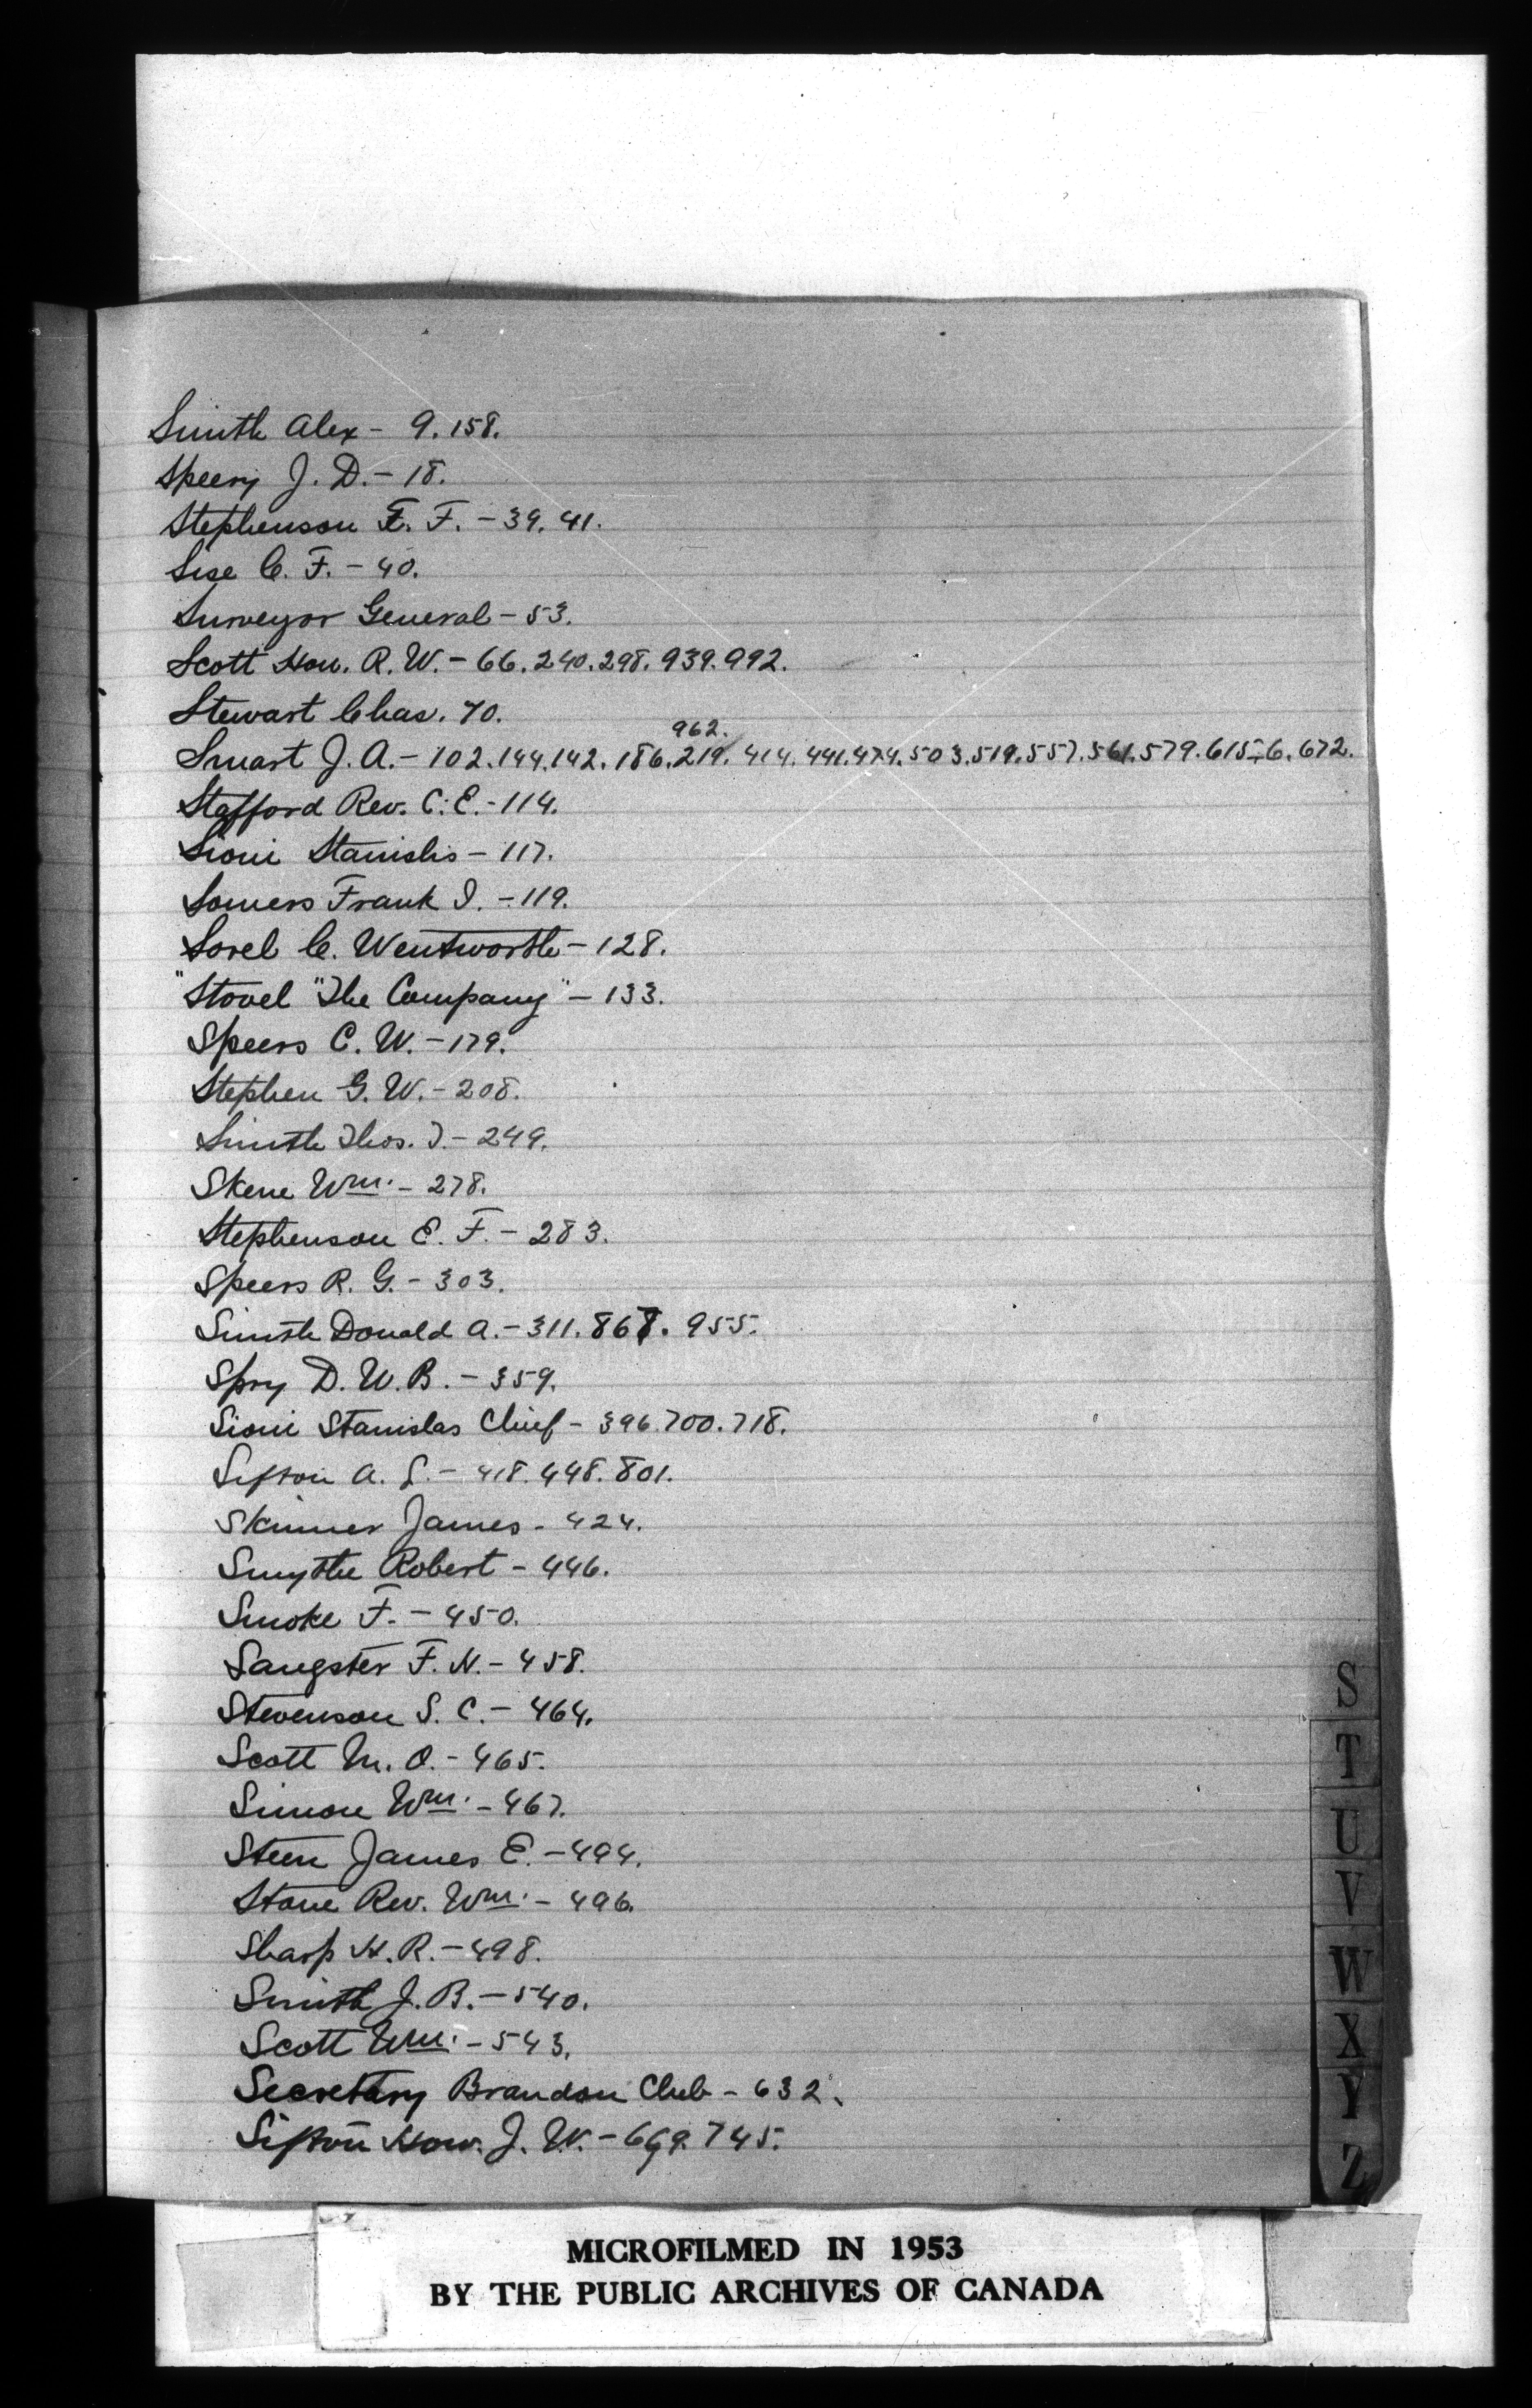 Smith Alex - 9. 158.
Speery J. D. - 18.
Stephenson E. F. - 39. 41.
Sise C. F. - 40.
Surveyor General - 53.
Scott Hon. R. W. - 66. 240. 298. 939. 992.
Stewart Chas. 70.
962.
Smart J. A. - 102. 144. 142. 186. 219. 414. 441. 474. 503. 519. 557. 561. 579. 615-6. 672.
Stafford Rev. C. E. - 114.
Sioui Stanislis - 117.
Somers Frank I. - 119.
Sorel C. Wentworth - 128.
"Stovel "The Company" - 133.
Speers C. W. - 179.
Stephen G. W. - 208.
Smith Thos. J. - 249.
Skene Wm. - 278.
Stephenson E. F. - 283.
Speers R. G. - 303.
Smith Donald A. - 311. 867. 955.
Spry D. W. B. - 359.
Sioui Stanislas Chief - 396. 700. 718.
Sifton A. L. - 418. 448. 801.
Skinner James - 424.
Smythe Robert - 446.
Smoke F. - 450.
Sangster F. N. - 458.
Stevenson S. C. - 464.
Scott M. O. - 465.
Simon Wm. - 467.
Steen James E. - 494.
Stone Rev. Wm. - 496.
Sharp H. R. - 498.
Smith J. B. - 540.
Scott Wm. - 543.
Secretary Brandon Club - 632.
Sifton Hon. J. W. - 669. 745.
S
T
U
V
W
X
Y
Z
MICROFILMED IN 1953
BY THE PUBLIC ARCHIVES OF CANADA